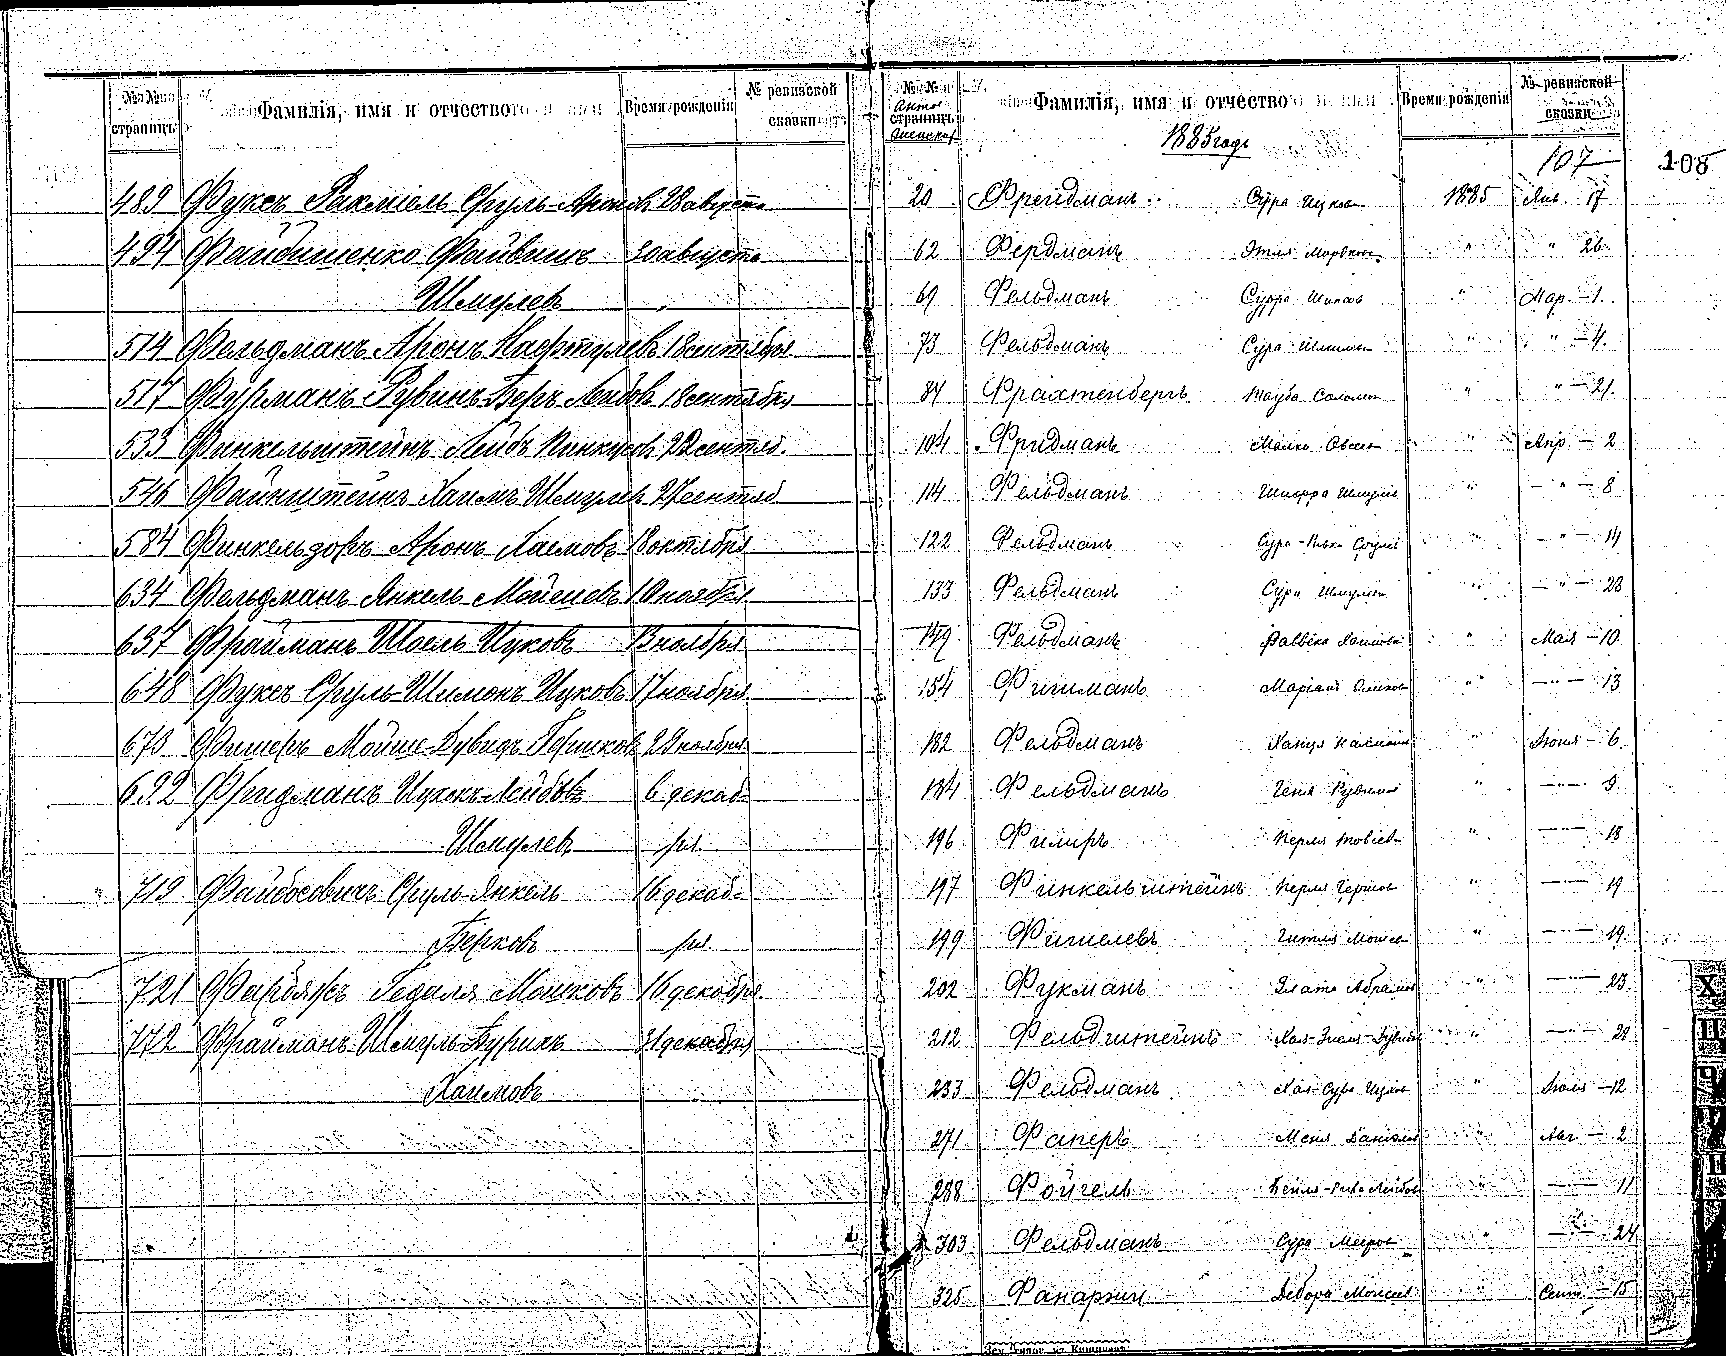 №№ страницъ
Фамилія, имя и отчество
Время рожденія
№ ревизской сказки
489 Фуксъ Рахміель Сруль-Аронов 28 августа
494 Файдишенко Файвишъ 30 августа
Шмулев
514 Фельдманъ Аронъ Нафтулевъ 18 сентября
517 Фурманъ Рувинъ-Беръ Лейбовъ 18 сентября
533 Финкельштейнъ Лейбъ Пинкусовъ 22 сентяб.
546 Файнштейнъ Хаимъ Шмулев 27 сентяб
584 Финкельзовъ Аронъ Хаимовъ 18 октября
634 Фельдманъ Янкель Мойсеевъ 10 ноября
637 Фрайманъ Шоель Ицковъ 13 ноября
648 Фуксъ Сруль-Шимонъ Ицковъ 17 ноября
673 Фишеръ Мойше-Дувидъ Гершков 22 ноября
692 Фридманъ Ицхокъ-Лейбовъ 6 декаб-
Шмулев ря
719 Файбосовичъ Сруль-Янкель 16 декаб-
Берковъ ря
721 Фарбяжъ Гедаля Мошковъ 16 декабря
772 Фрайманъ Шмуль-Бурихъ 31 декабря
Хаимовъ
№№ страницъ
Фамилія, имя и отчество
Время рожденія
№ ревизской сказки
1885 годъ
107
108
20 Фрейдманъ Сурра Ицков 1885 Янв. 17
62 Фердманъ Этля Мордков " " 26
69 Фельдманъ Сурра " Мар. - 1.
73 Фельдманъ Сура " " - 4.
84 Фрахтенбергъ Тауба Соломон " " - 21.
104 Фридманъ Малка Овсеев " Апр - 2
114 Фельдманъ Шмуле - " - 8
122 Фельдманъ Сура-Ривка Срулев - " - 14
133 Фельдманъ Сура Шмулев " - " - 28
149 Фельдманъ Хаимова " Мая - 10
154 Фишманъ " - " - 13
182 Фельдманъ Ханця " Іюня - 6
184 Фельдманъ Геня Рувинов " - 9
196 Фишеръ Перля Товіев " - 18
197 Финкельштейнъ Перля Гершов " - 19
199 Фишелевъ Гитля Мошков " - 19
202 Фукманъ Злата Абрамов " - 23
212 Фельдштейнъ Хая-Дувид " - 28
233 Фельдманъ Хая-Сура Ицков " Іюля - 12
271 Фаперъ Меня Даніелев " Авг - 2
288 Фойгель Бейля-Рива Лейбов - 11
303 Фельдманъ Сура Мееров " - 24
325 Фанаржи Дебора Моисеев " Сент. - 15